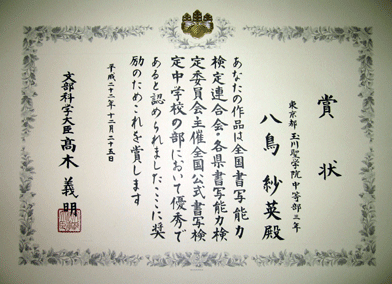 賞状
東京都 玉川聖学院中等部三年
八鳥紗英殿
あなたの作品は全国書写能力
検定連合会・各県書写能力検
定委員会主催全国公式書写検
定中学校の部において優秀で
あると認められました ここに奨
励のため これを賞します
平成二十二年十二月二十五日
文部科学大臣 髙木義明